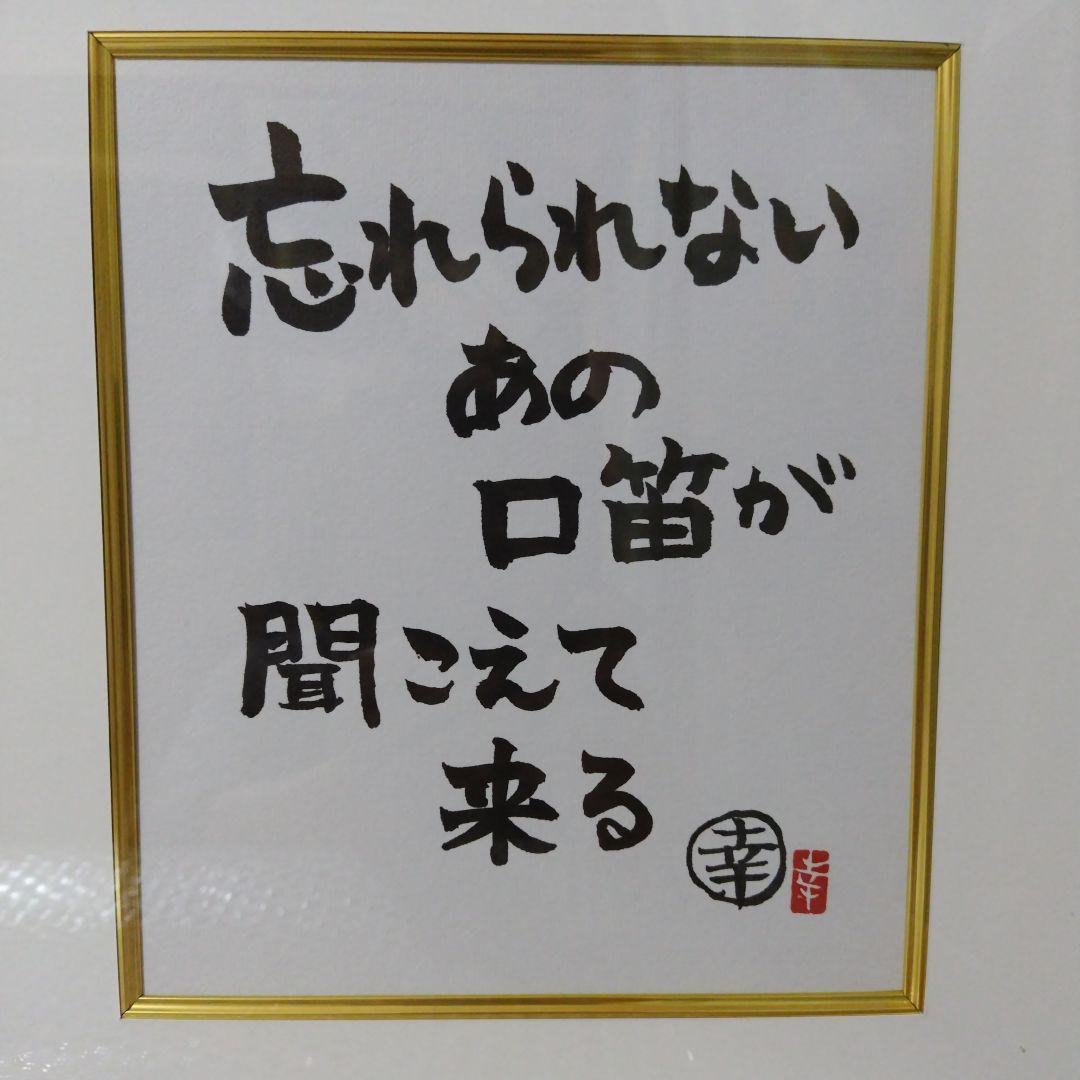 忘れられない
あの
口笛が
聞こえて
来る
幸
幸